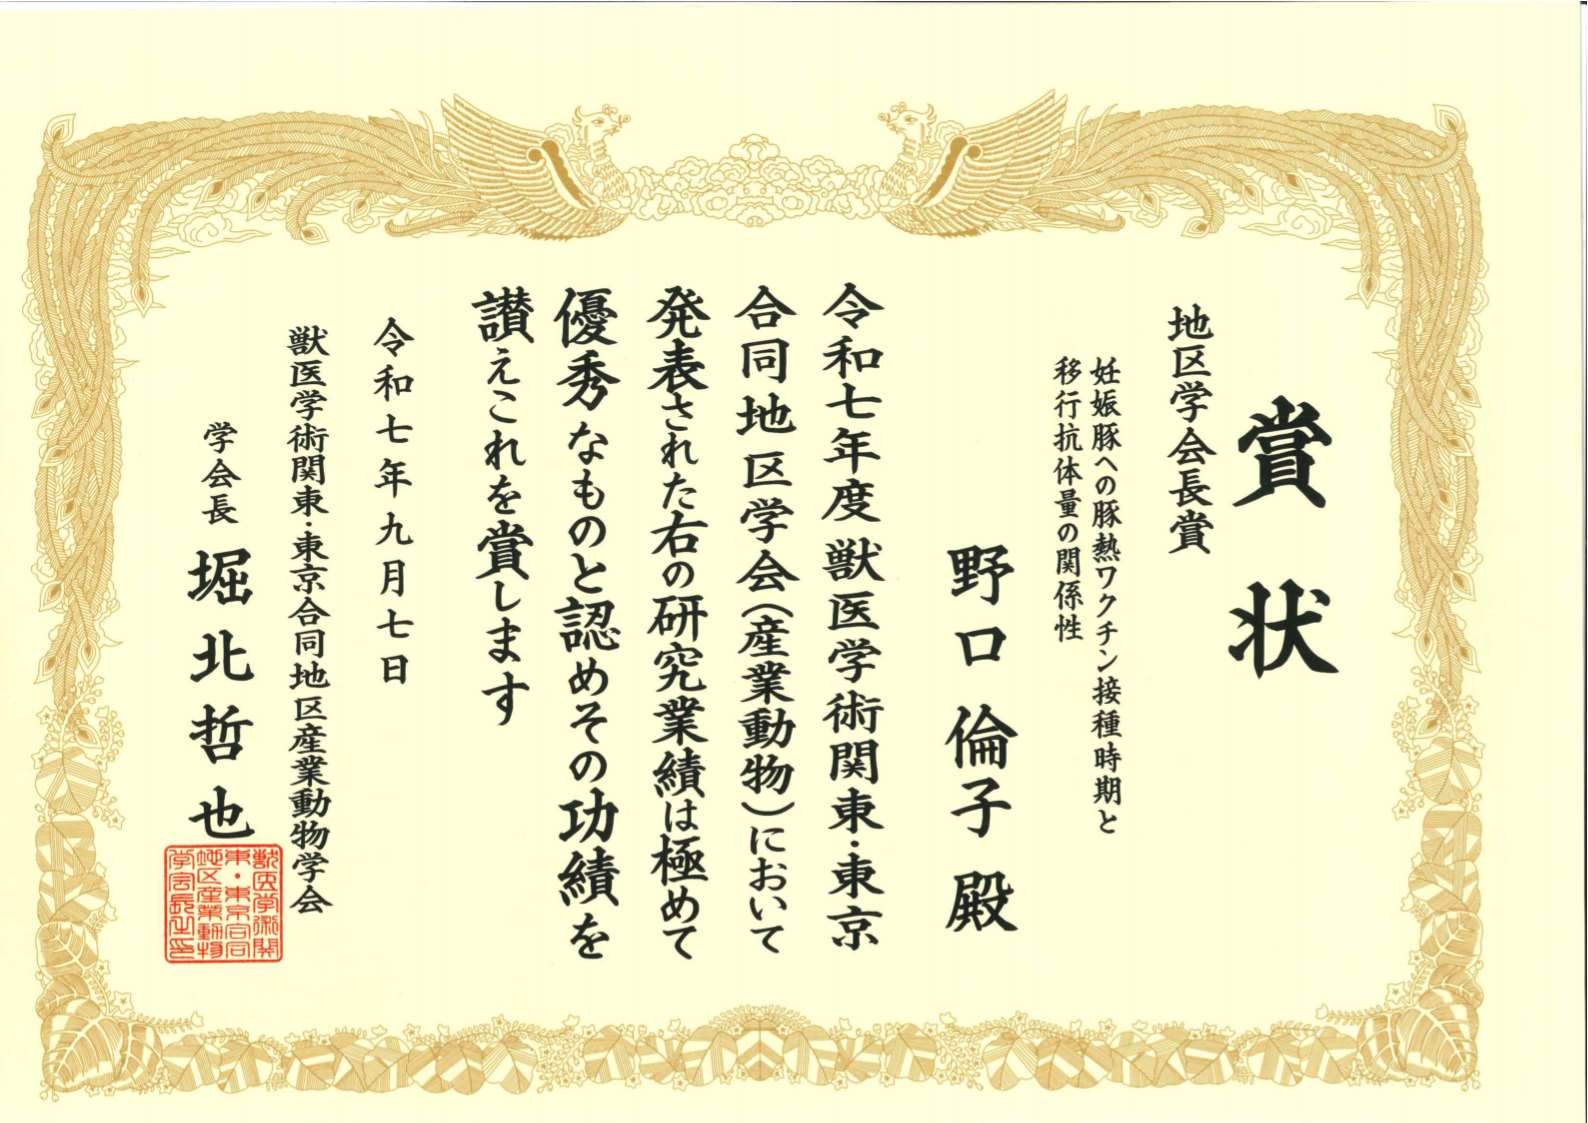 賞状
地区学会長賞
妊娠豚への豚熱ワクチン接種時期と
移行抗体量の関係性
野口倫子殿
令和七年度獣医学術関東・東京
合同地区学会(産業動物)において
発表された右の研究業績は極めて
優秀なものと認めその功績を
讃えこれを賞します
令和七年九月七日
獣医学術関東・東京合同地区産業動物学会
学会長 堀北哲也
獣医学術関
東・東京合同
地区産業動物
学会長之印